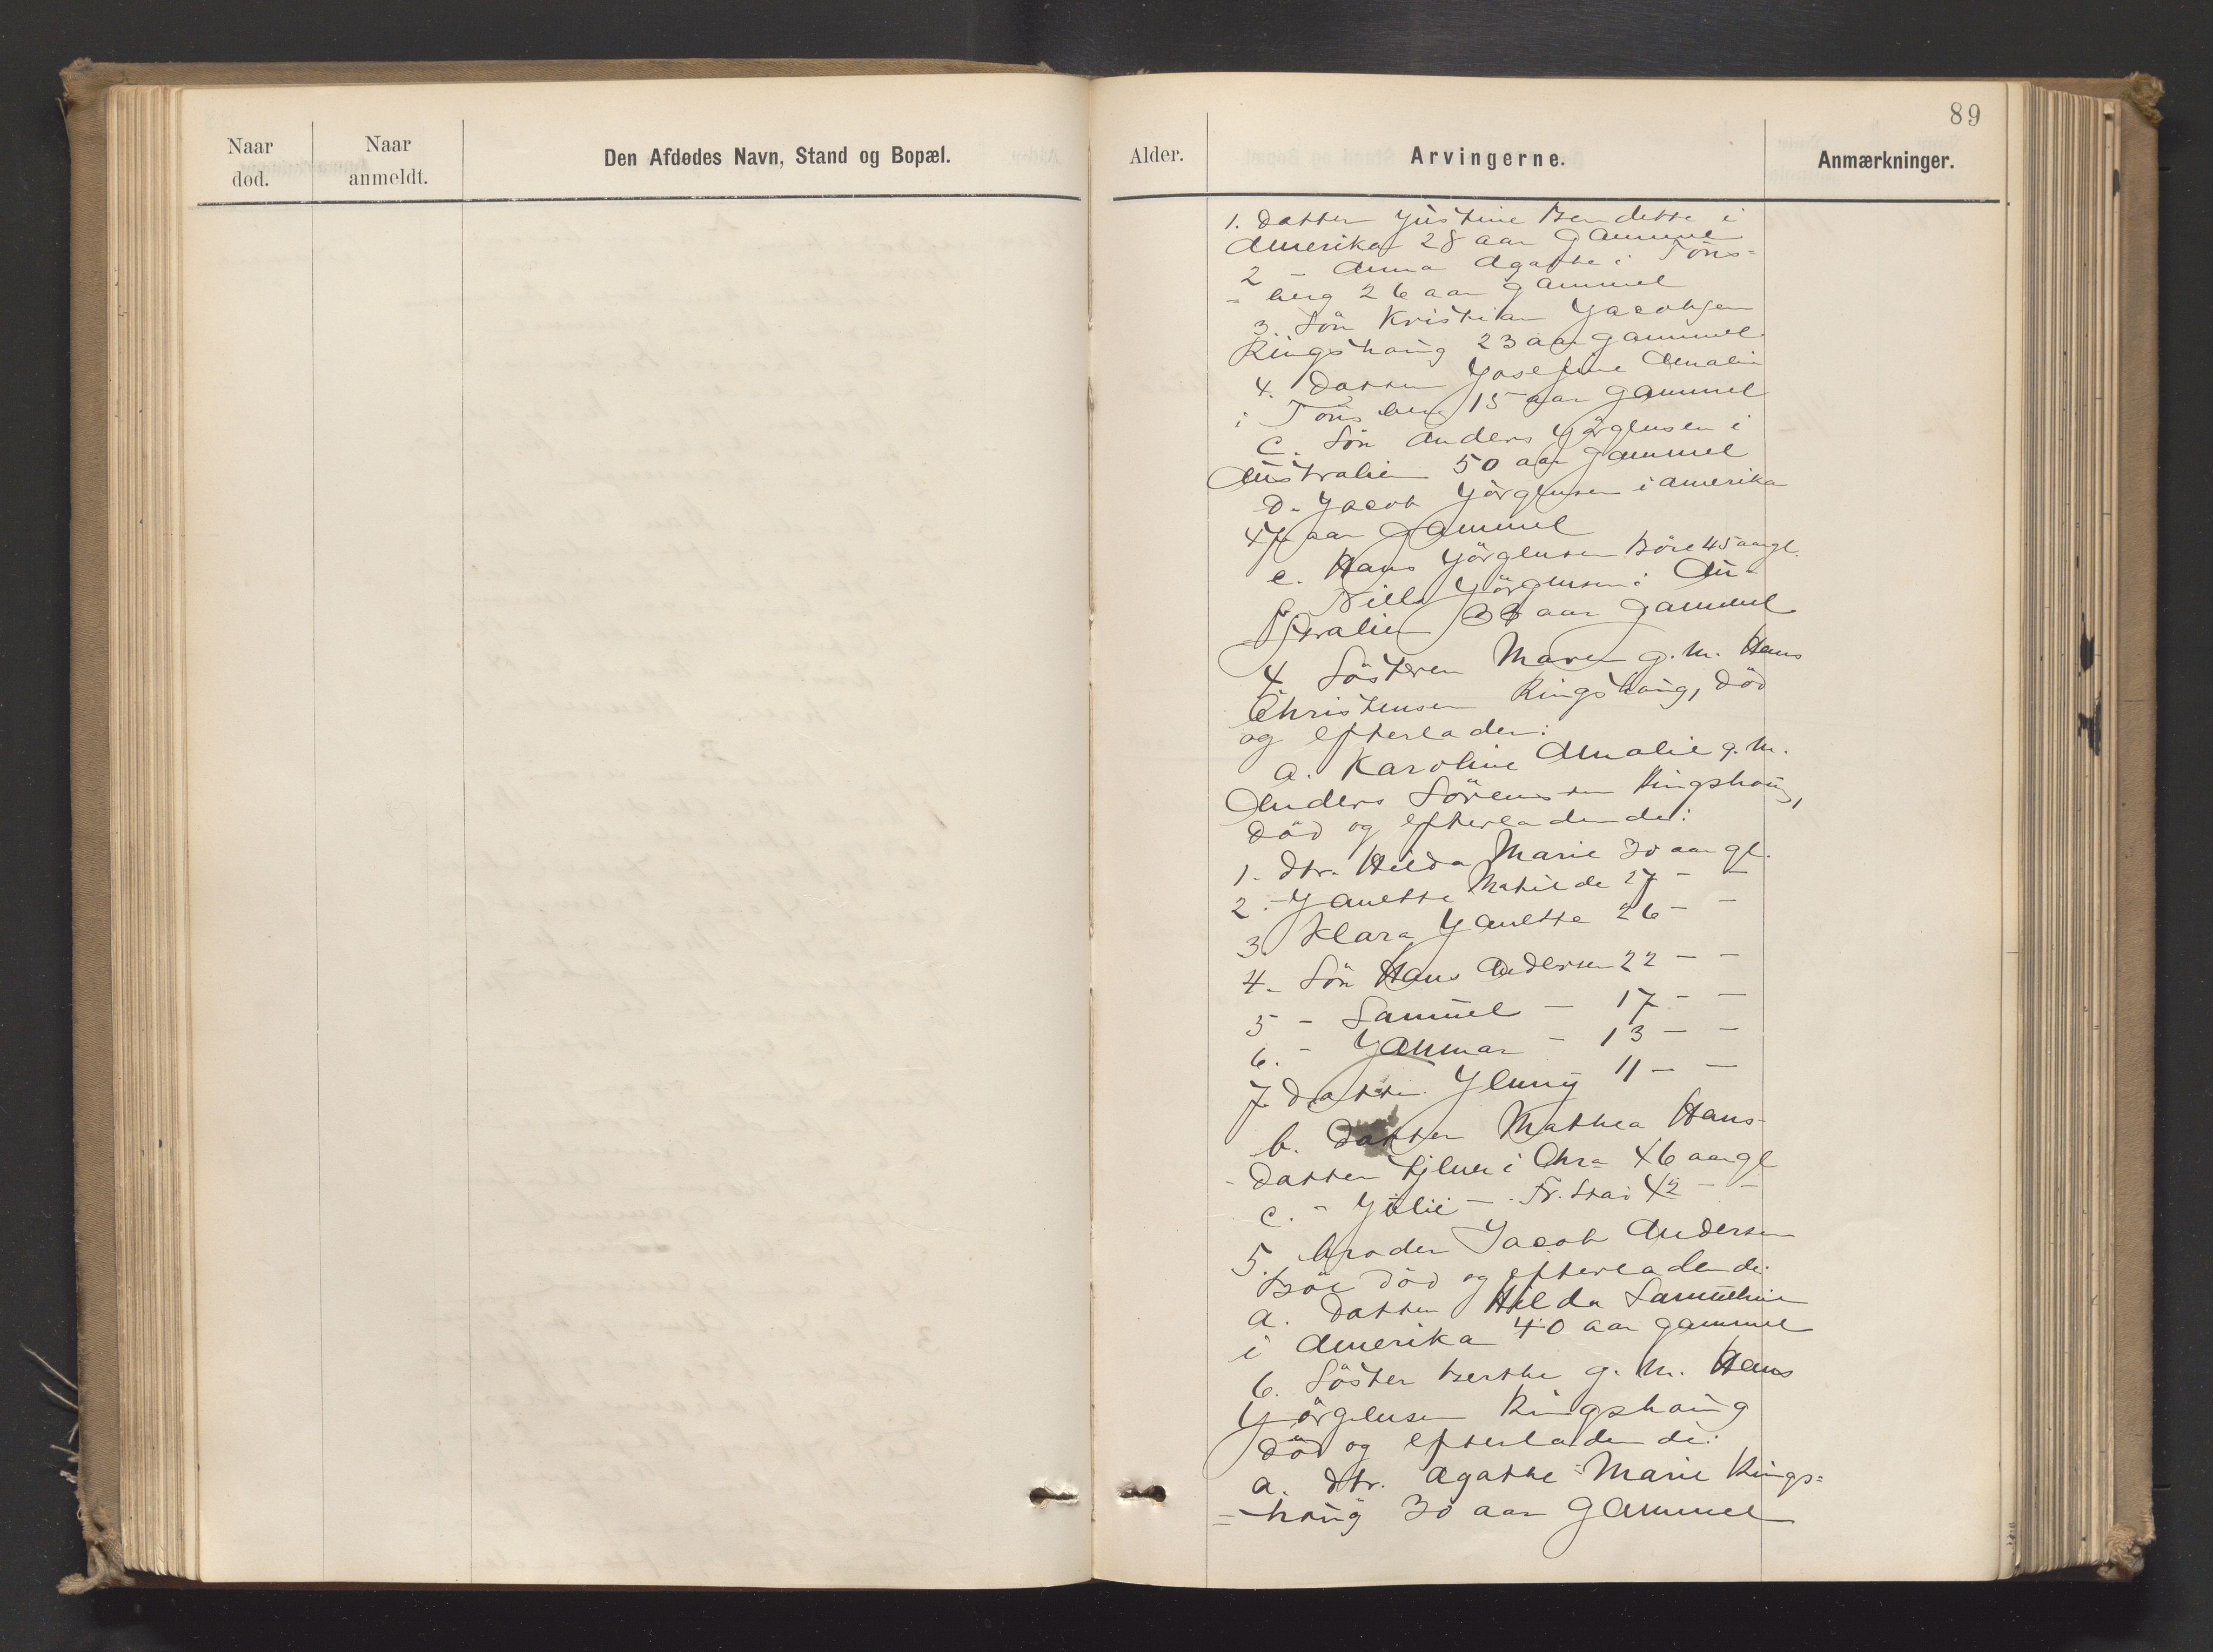 89
Naar død.
Naar anmeldt.
Den Afdødes Navn, Stand og Bopæl.
Alder.
Arvingerne.
Anmærkninger.
1. Datter Justine Bendette i
Amerika 28 aar gammel
2 - Anna Agathe i Töns=
= berg 26 aar gammel
3. Sön Kristian Jacobsen
Ringshaug 23 aar gammel.
4. Datter Josefine Amalie
i Tönsberg 15 aar gammel
C. Sön Anders Jörgensen i
Australien 50 aar gammel
D. Jacob Jörgensen i Amerika
47 aar gammel
e. Hans Jörgensen Böre 45 aar gl.
f. Nills Jörgensen i Au-
= stralien aar gammel
4 Sösteren Maren g. m. Hans
Christensen Ringshaug, död
og efterladen:
a. Karoline Amalie g. m.
Anders Sörensen Ringshaug,
död og efterladende:
1. Dtr. Hilda Marie 30 aar gl.
2. - Janette Matilde 27 - -
3. Klara Janette 26 - -
4. Sön Hans Andersen 22 - -
5 - Samuel - 17 - -
6. - Jammar - 13 - -
7. Datter Jenny 11 - -
b. Datter Mathea Hans-
- Datter tjener i Chra 46 aar gl
c. - Julie - Fr. 42 - -
5. broder Jacob Andersen
Böre död og efterladende:
a. Datter Hilda Samueline
i Amerika 40 aar gammel
6. Söster Berthe g. m. Hans
Jörgensen Ringshaug
död og efterladende:
a. Dtr. Agathe Marie Rings=
= haug 30 aar gammel